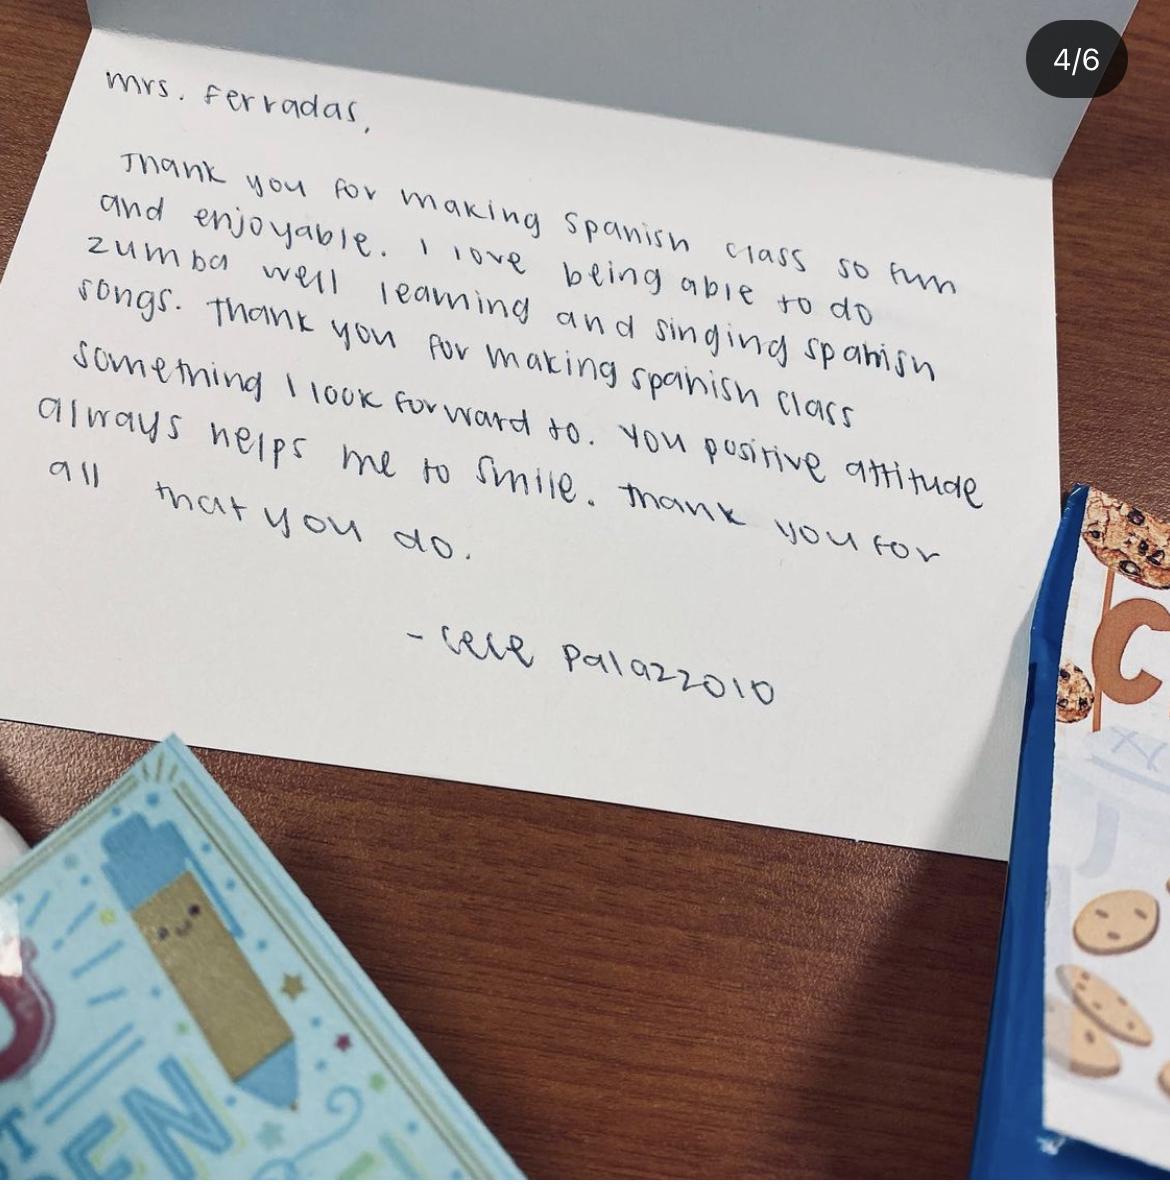 4/6
Mrs. Ferradas,
Thank you for making Spanish class so fun
and enjoyable. I love being able to do
zumba well learning and singing spanish
songs. Thank you for making spanish class
something I look forward to. You positive attitude
always helps me to smile. Thank you for
all that you do.
- Cece Palazzolo
C
EN